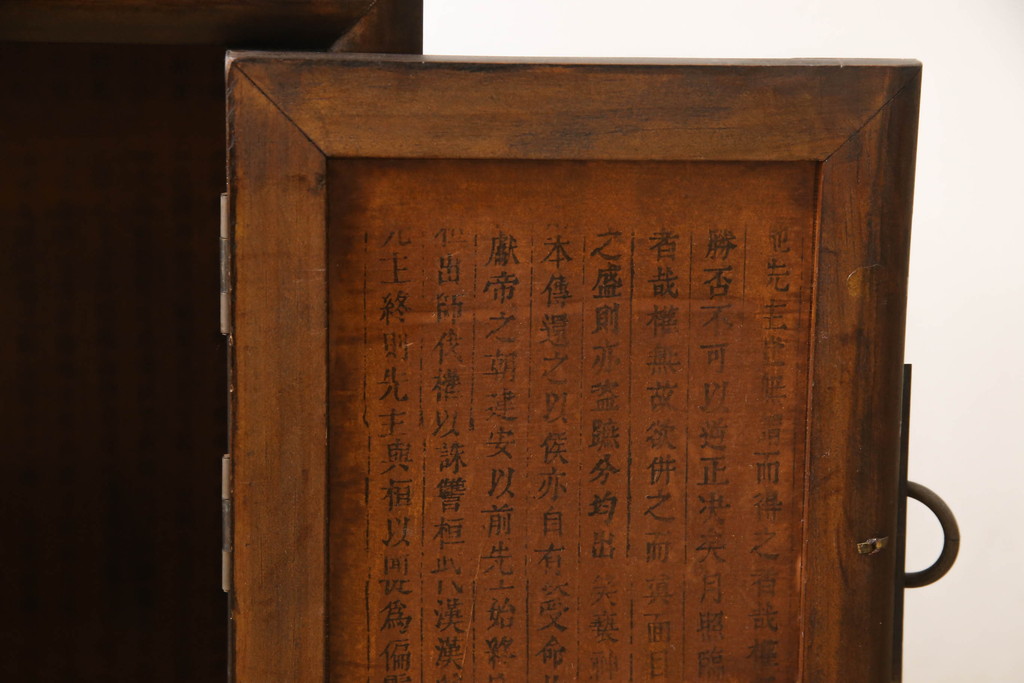 先主世無謂而得之者哉權
勝否不可以逆正決矣月照臨
者哉權無故欲併之而真面目
之盛則亦盜蹠分均出矣
本傳還之以侯亦自有受命
獻帝之朝建安以前先主始終
出師伐權以誅讐桓 代漢漢
先主終則先主與桓以 從為偏